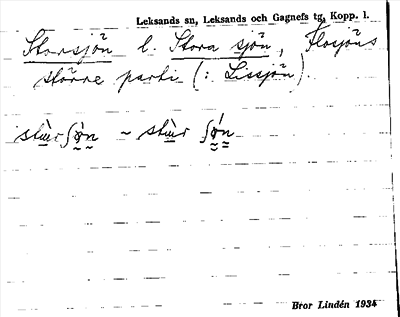 Leksands sn, Leksands och Gagnefs tg, Kopp. l.
Storsjön l. Stora sjön, Flosjöns
större parti (: Lissjön).
~
Bror Lindén 1934